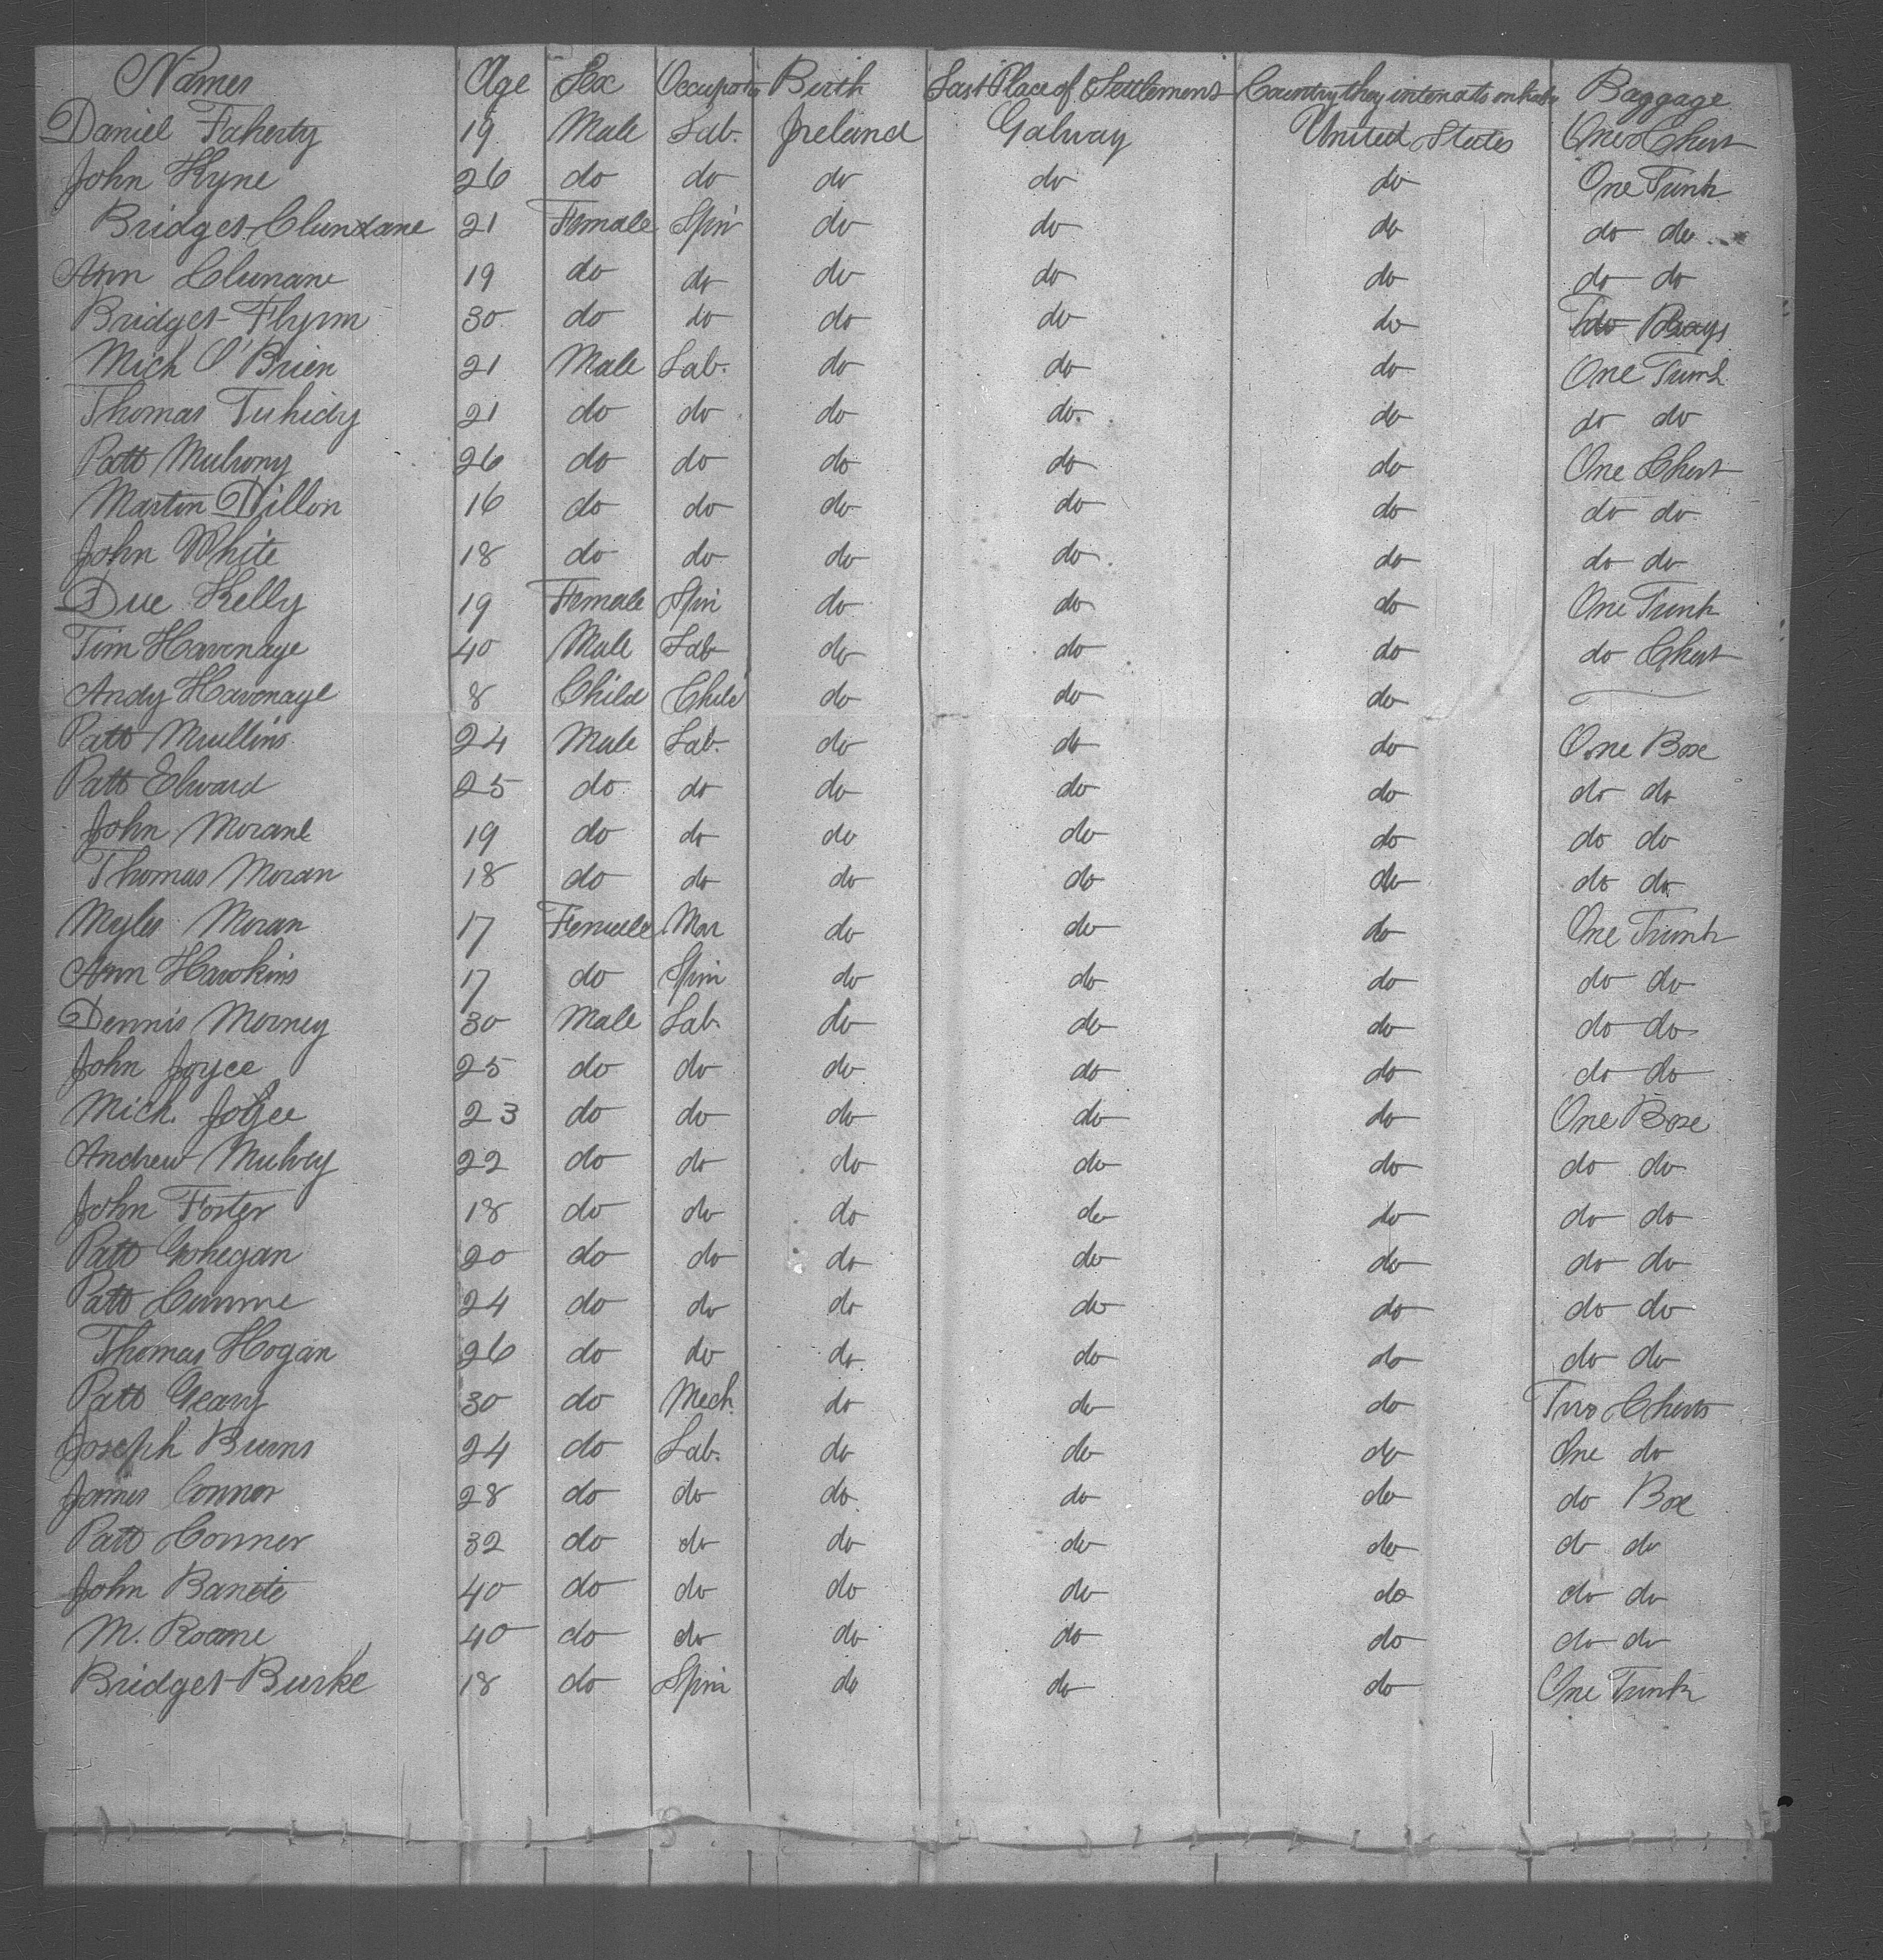 Names Age Sex Occupation Birth Last Place of Settlement Country they intend to inhabit Baggage
Daniel Faherty 19 Male Lab. Ireland Galway United States One Chest
John Kyne 26 do do do do do One Trunk
Bridget Clunxane 21 Female Spin do do do do do
Ann Clunane 19 do do do do do do do
Bridget Flynn 30 do do do do do
Mich O'Brien 21 Male Lab. do do do One Trunk
Thomas Tuhidy 21 do do do do do do do
Patt Mulrony 26 do do do do do One Chest
Martin Dillon 16 do do do do do do do
John White 18 do do do do do do do
Due Kelly 19 Female Spin do do do One Trunk
Tim Havenaye 40 Male Lab do do do do Chest
Andy Havenaye 8 Child Child do do do
Patt Mullins 24 Male Lab. do do do One Box
Patt Elward 25 do do do do do do do
John Morane 19 do do do do do do do
Thomas Moran 18 do do do do do do do
Myles Moran 17 Female Mar do do do One Trunk
Ann Hawkins 17 do Spin do do do do do
Dennis Morney 30 Male Lab. do do do do do
John Joyce 25 do do do do do do do
Mich. Joyce 23 do do do do do One Box
Andrew Mulvey 22 do do do do do do do
John Foster 18 do do do do do do do
Patt Gohegan 20 do do do do do do do
Patt Cunnne 24 do do do do do do do
Thomas Hogan 26 do do do do do do do
Patt Geary 30 do Mech. do do do Two Chests
Joseph Burns 24 do Lab. do do do One do
James Connor 28 do do do do do do Box
Patt Connor 32 do do do do do do do
John Banete 40 do do do do do do do
M. Roane 40 do do do do do do do
Bridget Burke 18 do Spin do do do One Trunk